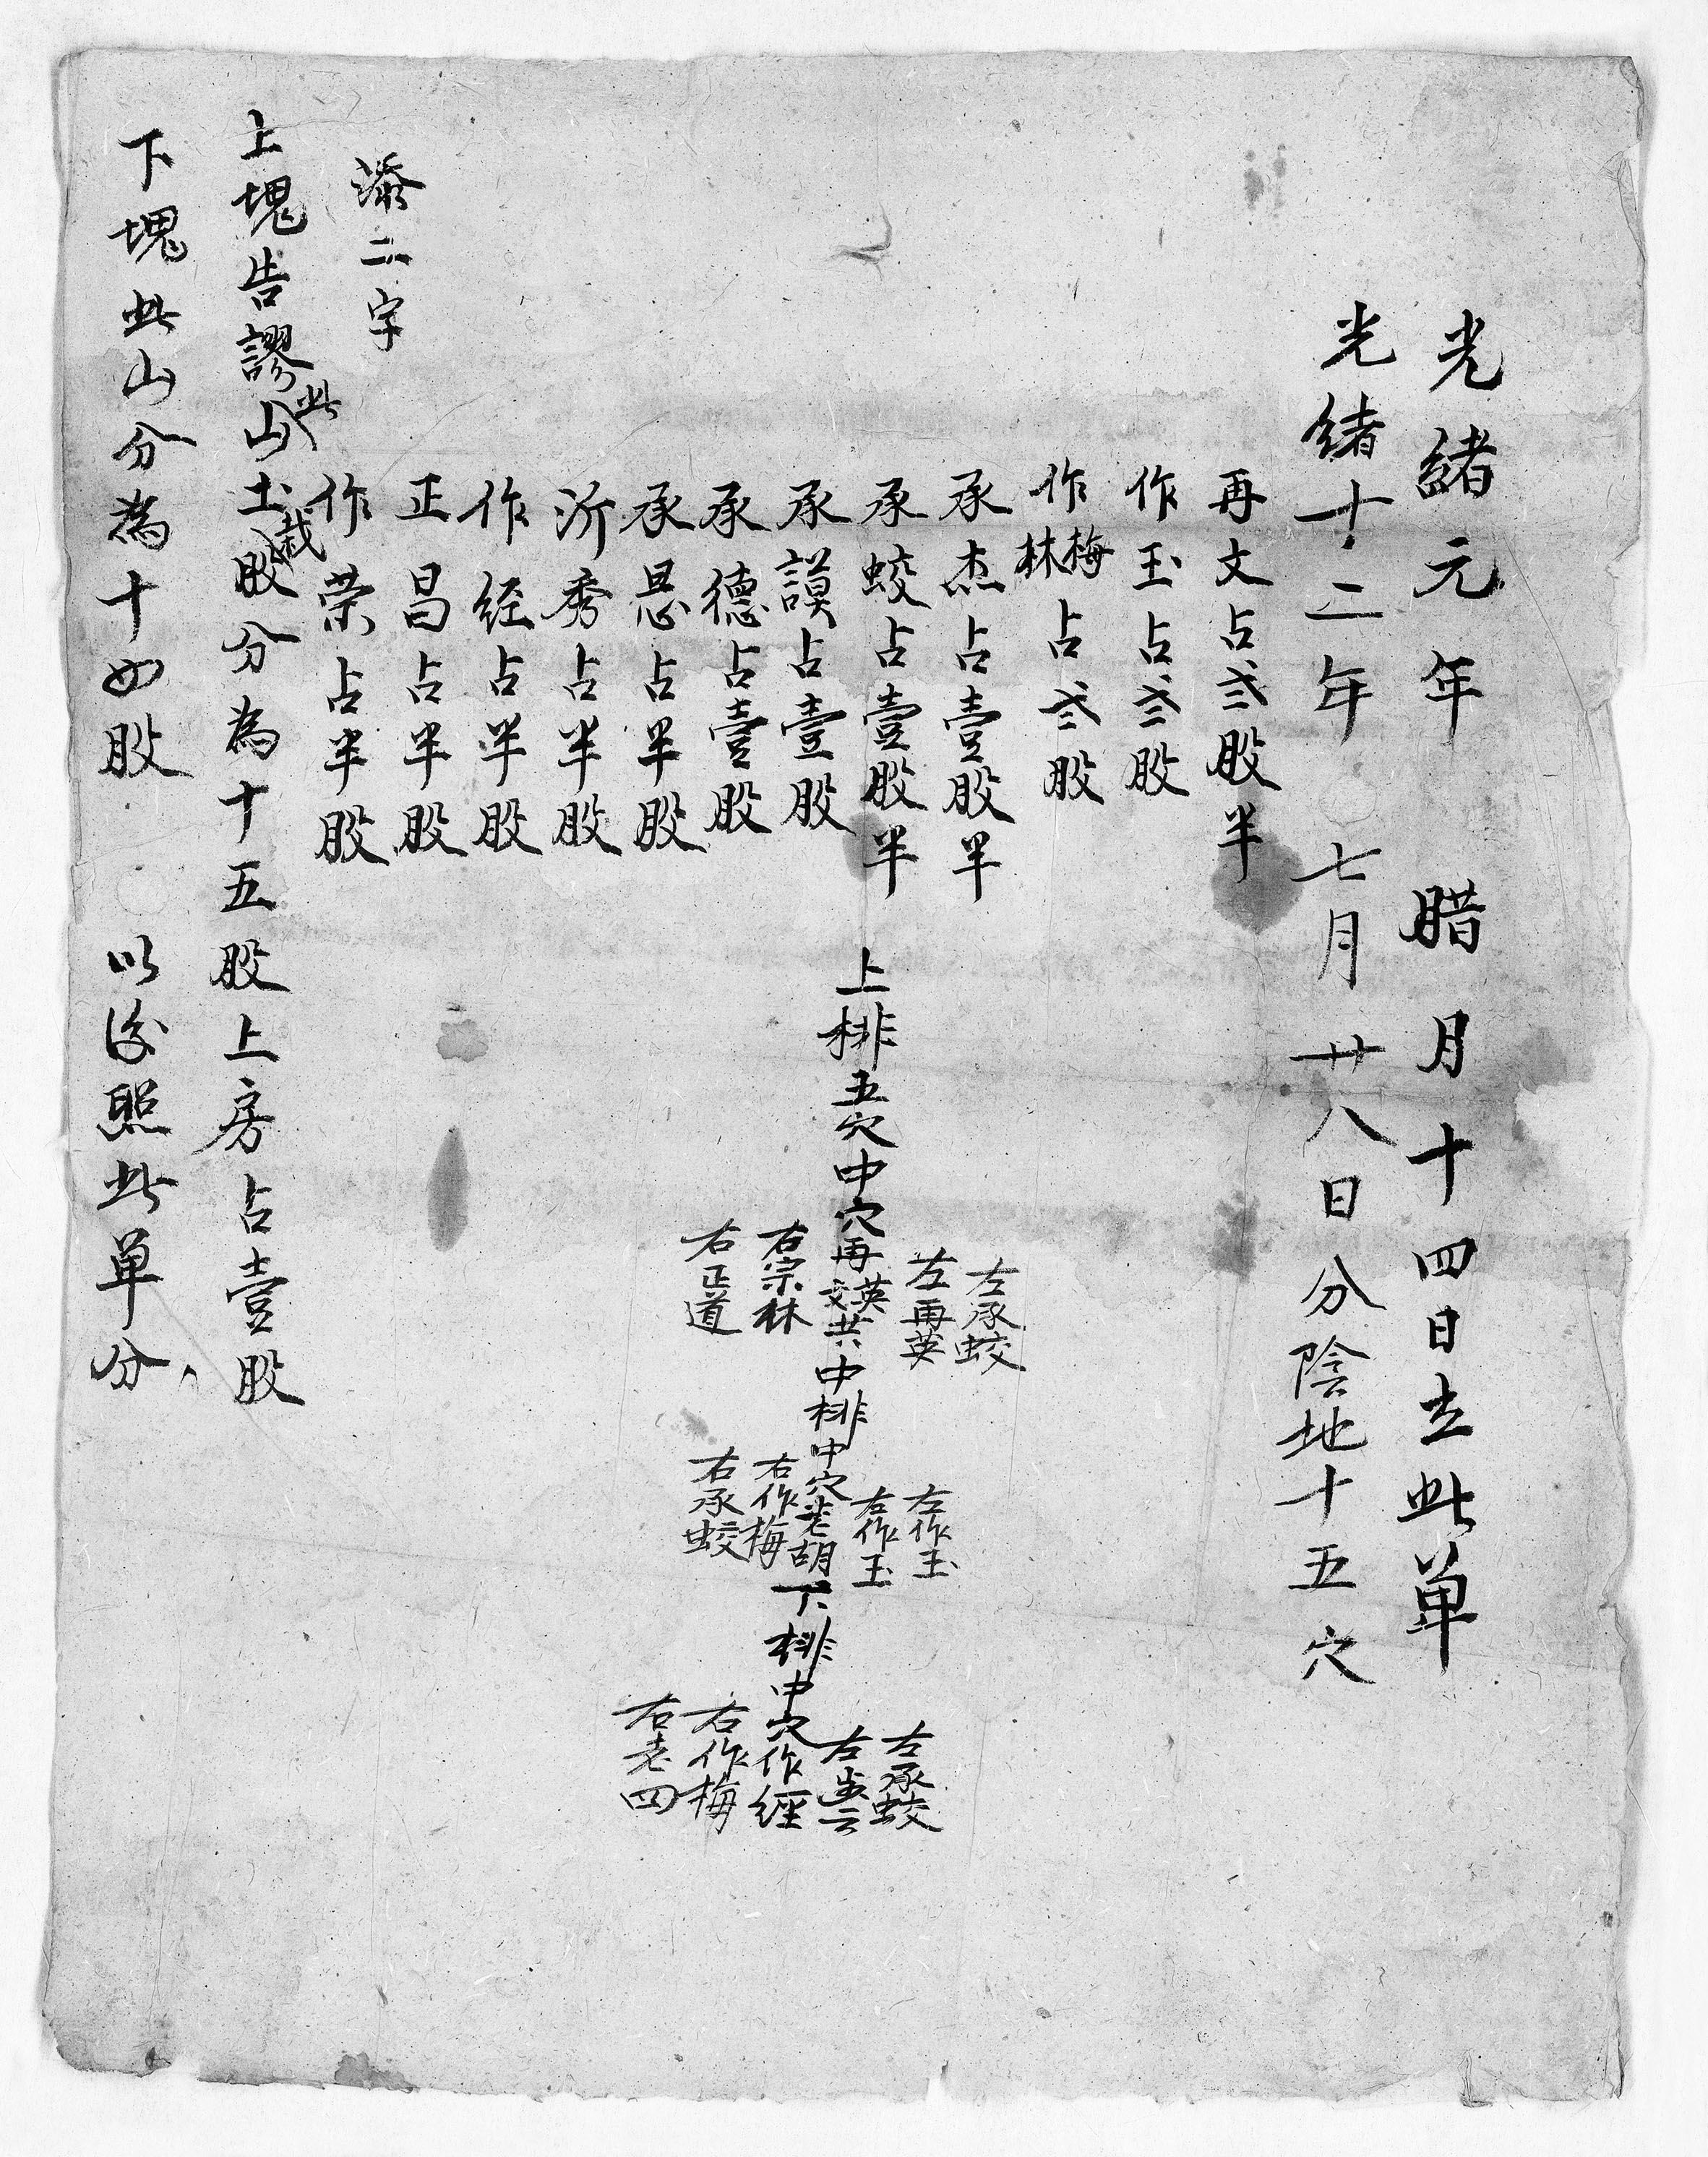 光緒元年 腊月十四日立此单
光緒十二年 七月廿八日分陰地十五穴
再文占叁股半
作玉占叁股
作梅林占叁股
承杰占壹股半
承蛟占壹股半
承謨占壹股
承德占壹股
承恩占半股
沂秀占半股
作经占半股
正昌占半股
作荣占半股
上排五穴中穴再英文共
左承蛟
左再英
右宗林
右正道
中排中穴老胡
左作玉
左作玉
右作梅
右承蛟
下排中穴作經
左承蛟
左
右作梅
右老四
添二字
上塊告謬此山土栽股分為十五股上房占壹股
下塊此山分為十四股 以後照此单分